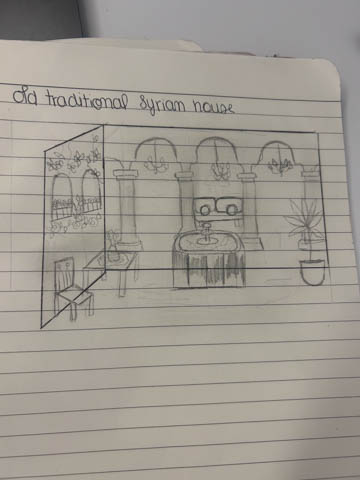 old traditional Syrian house